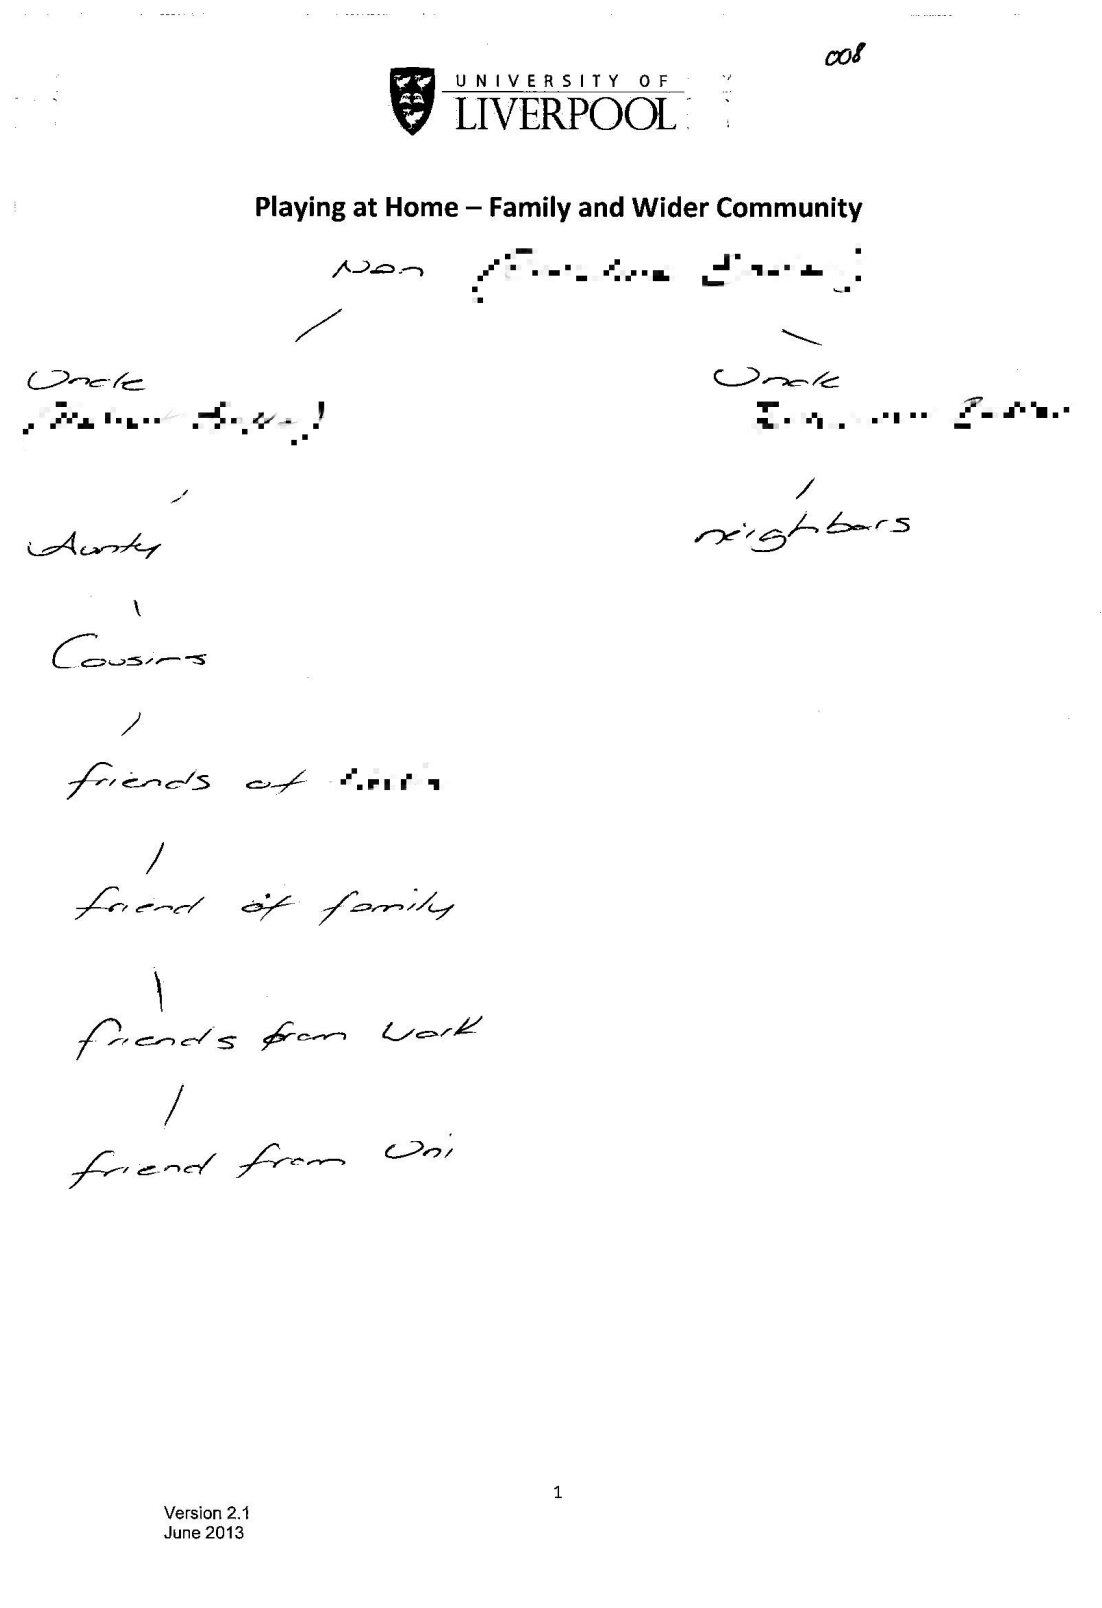 008
UNIVERSITY OF
LIVERPOOL
Playing at Home – Family and Wider Community
Nan
Uncle
Uncle
Aunty
neighbors
Cousins
friends of
friend of family
friends from work
friend from Uni
1
Version 2.1
June 2013